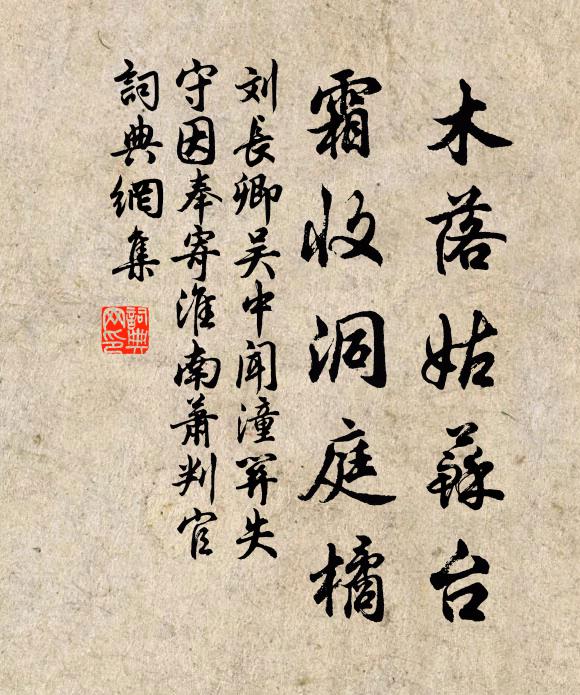 木落姑蘇台
霜收洞庭橘
刘長卿吴中闻潼関失
守因奉寄淮南萧判官
詞典網集
詞典网印